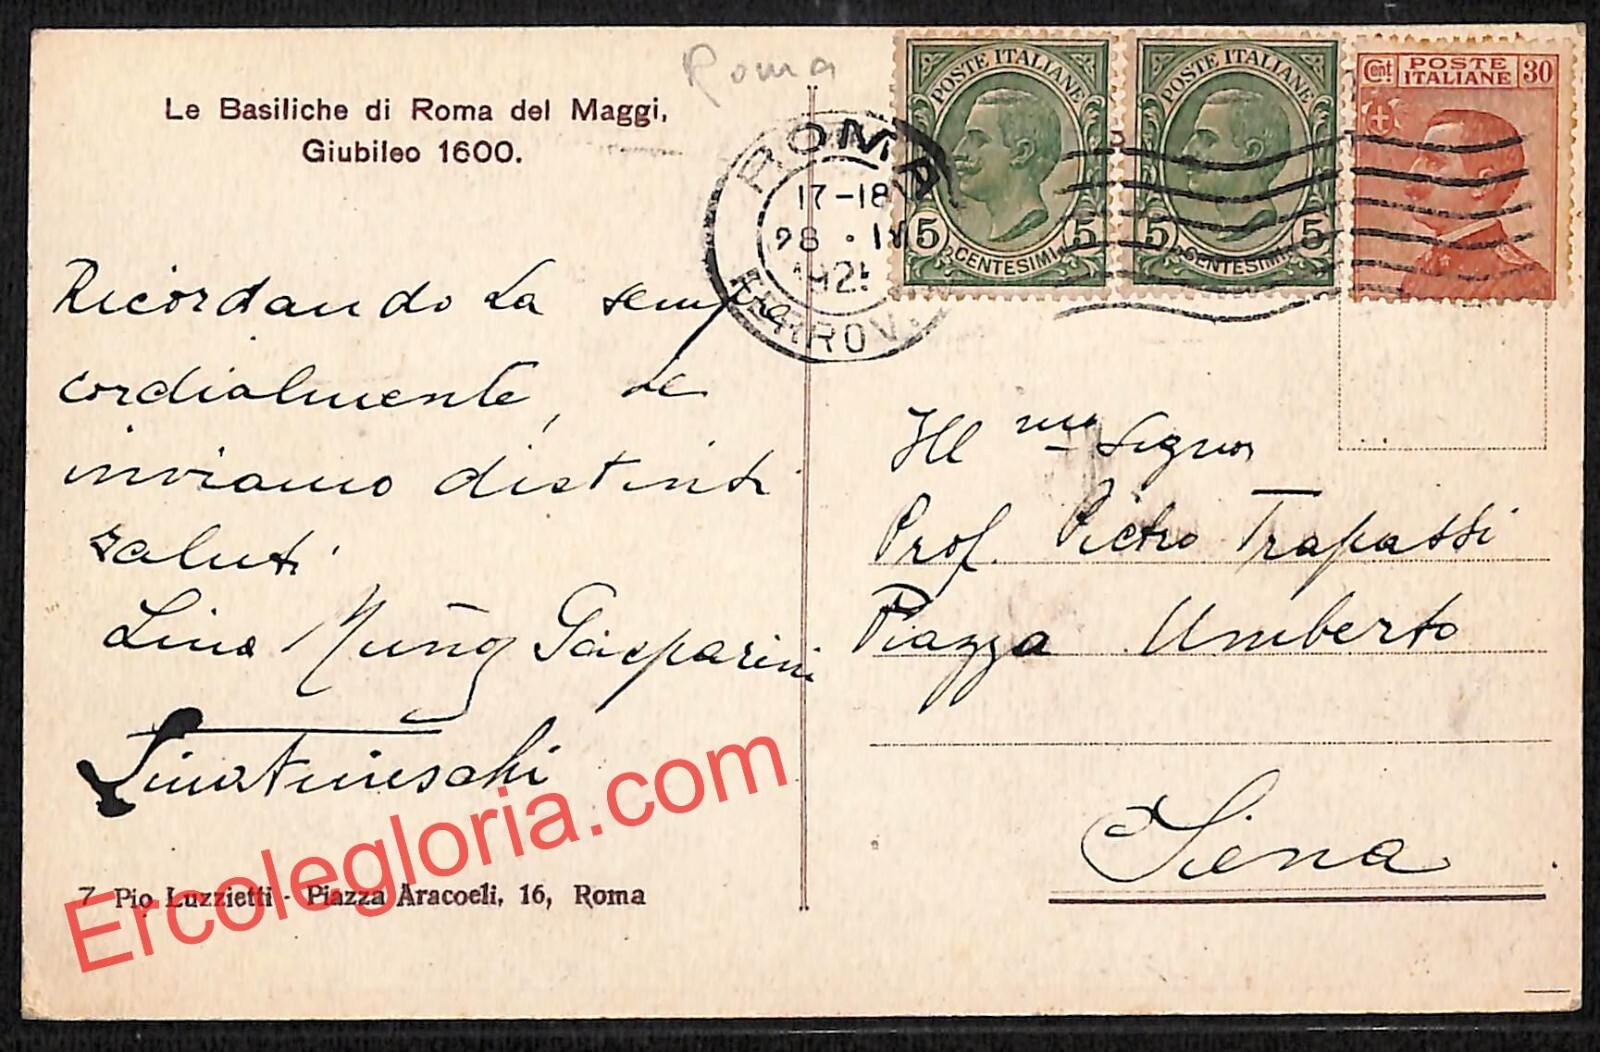 Roma
Le Basiliche di Roma del Maggi,
Giubileo 1600.
POSTE ITALIANE
5 CENTESIMI 5
POSTE ITALIANE
5 CENTESIMI 5
Cent POSTE ITALIANE 30
ROMA
17-18
28 · IV
FERROV.
Ricordando La sempre
cordialmente, Le
inviamo distinti
saluti
Lina Muñoz Gasparini
Ill mo Signor
Prof. Pietro Trapassi
Piazza Umberto
Siena
7 Pio Luzzietti - Piazza Aracoeli, 16, Roma
Ercolegloria.com